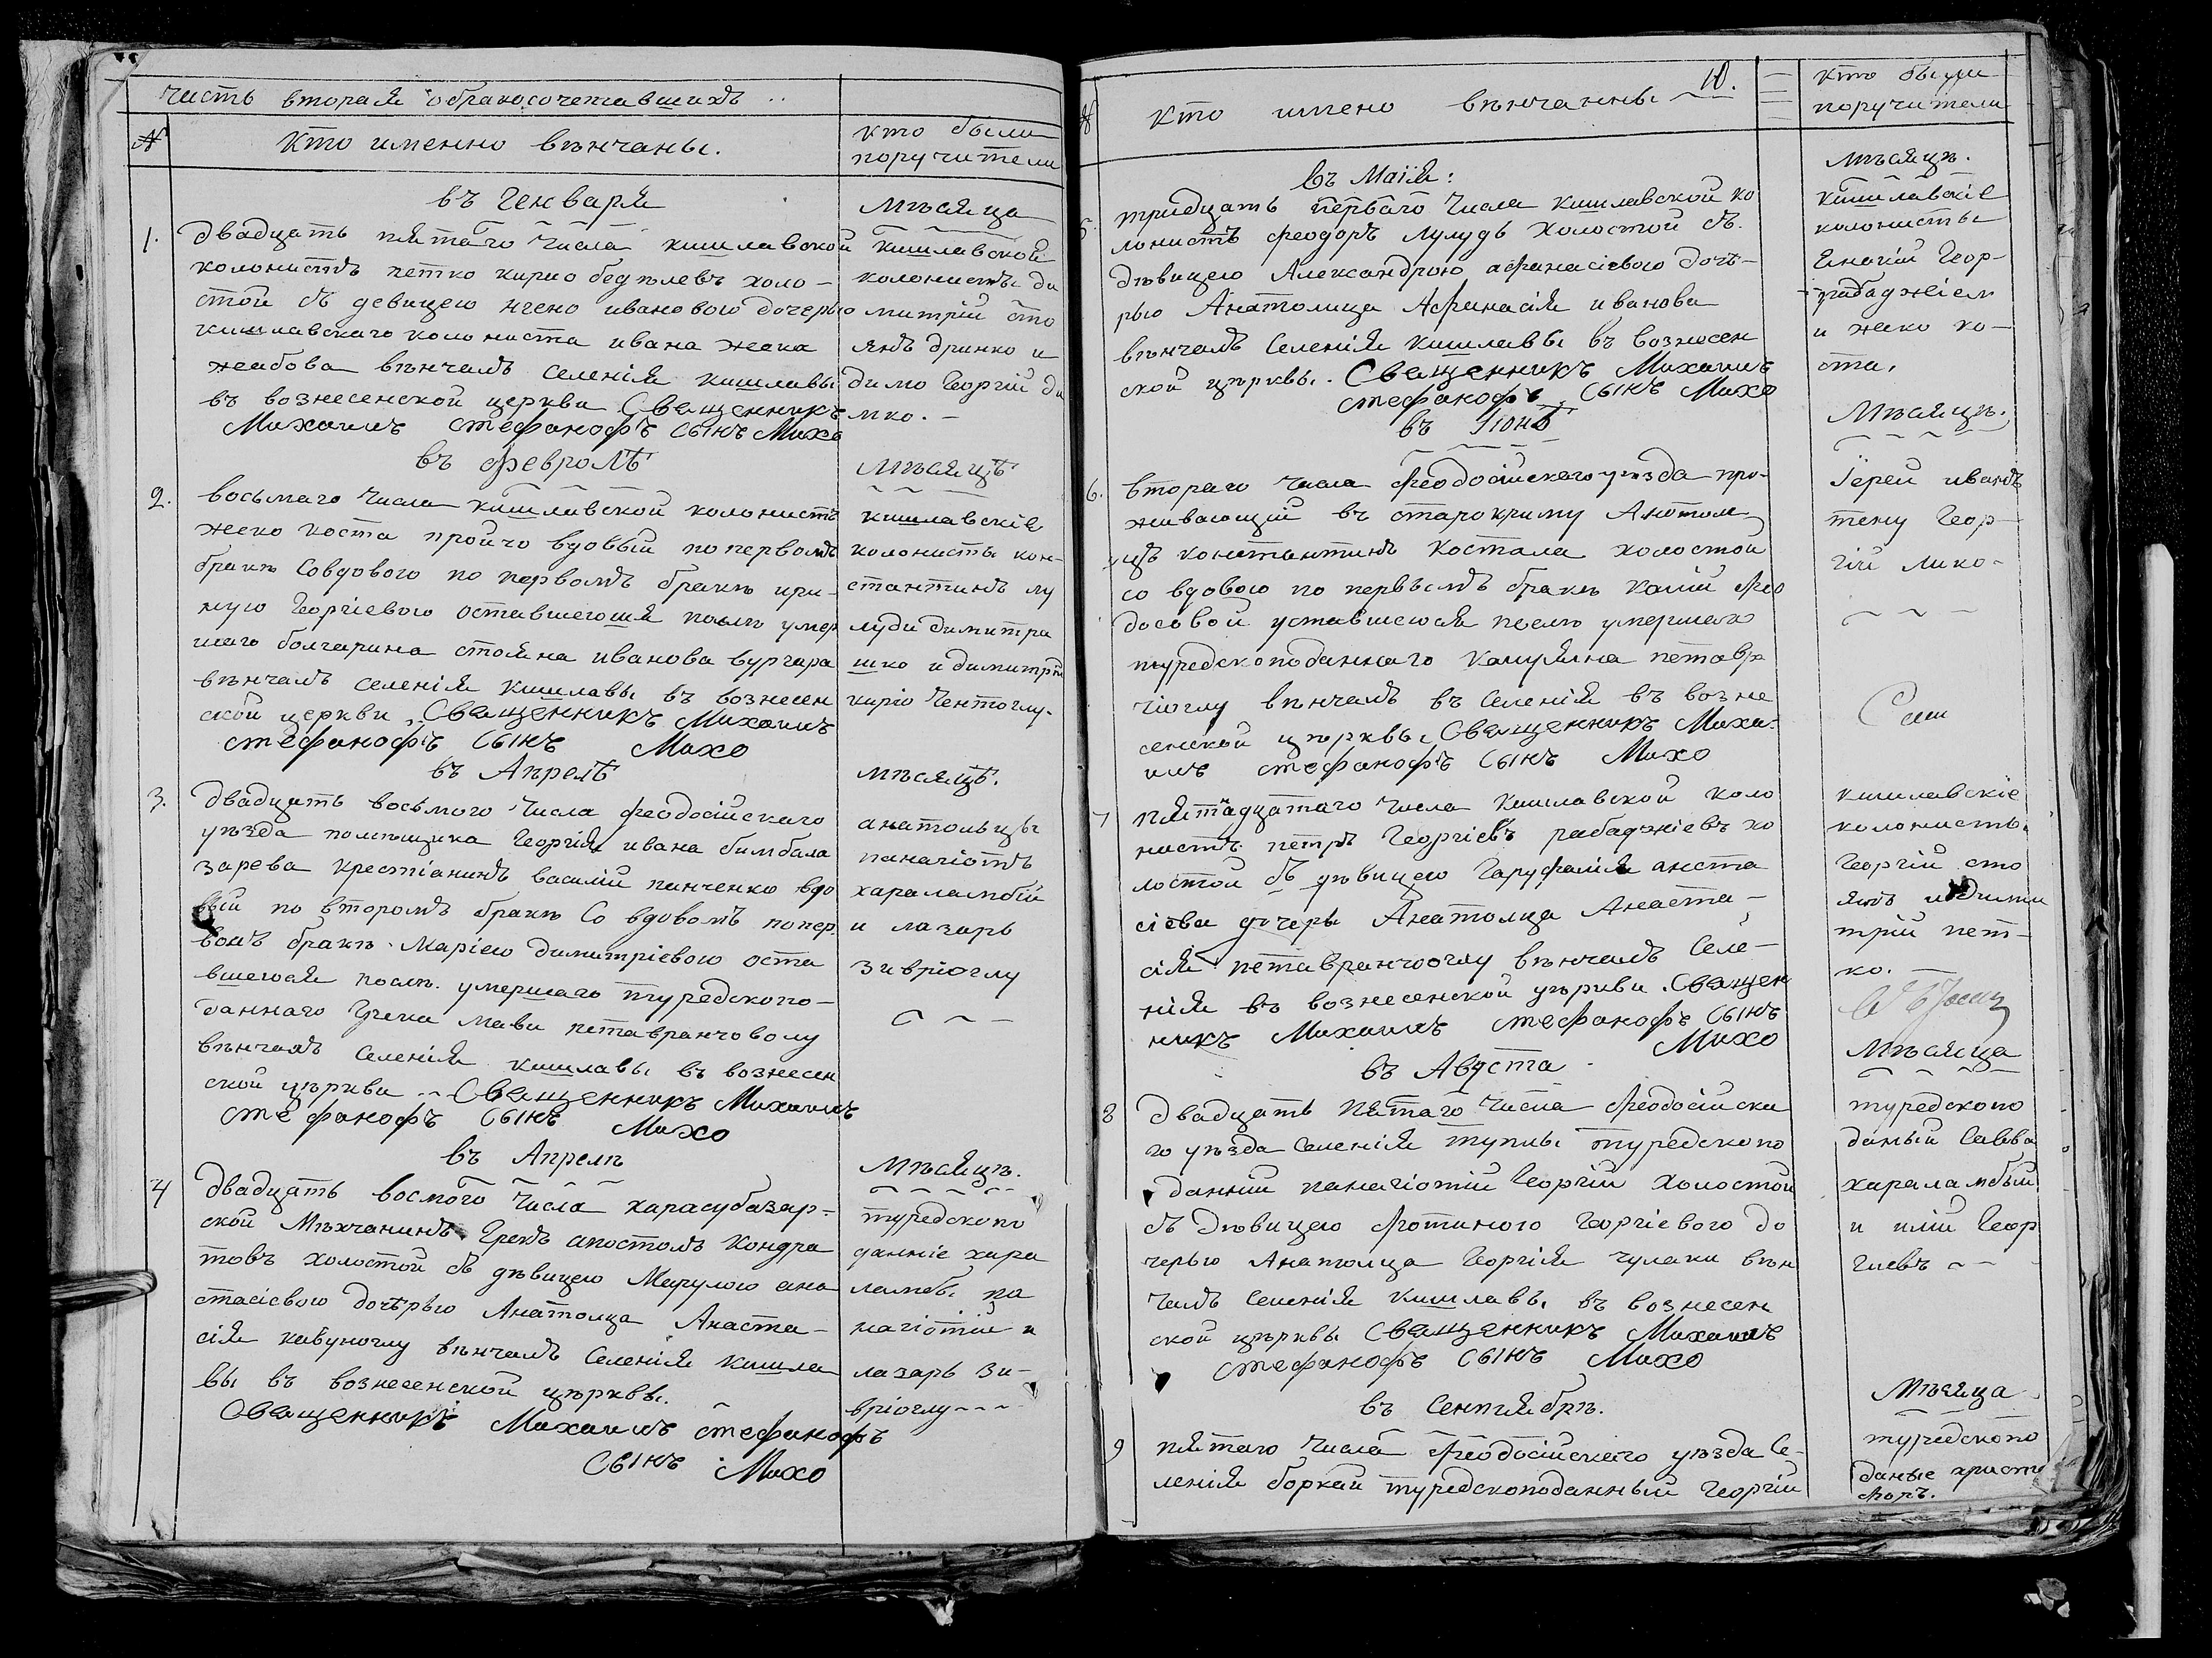 часть вторая о бракосочетавшихъ
№ Кто именно вѣнчаны.
кто были
поручители
въ Генваря
мѣсяца
1. двадцать пятаго числа кишлавской
колонистъ петко кирио холо-
стой съ девицею нчено ивановою дочерью
кишлавскаго колониста ивана жека
жеабова вѣнчалъ селенія кишлавы
въ вознесенской церкви Священникъ
Михаилъ стефанофъ Сынъ Михо
кишлавской
колонистъ ди
митрій сто
янъ дринко и
димо Георгій ди
мко. -
въ февролѣ
мѣсяцѣ
2. восьмаго числа кишлавской колонистъ
жеко коста пройчо вдовый по первомъ
бракѣ Совдовою по первомъ бракѣ ири-
ною Георгіевою оставшеюшя послѣ умер
шаго болгарина стояна иванова бургара
вѣнчалъ селенія кишлавы въ вознесен
ской церкви, Священникъ Михаилъ
стефанофъ Сынъ Михо
кишлавскіе
колонисты кон-
стантинъ лу
луди димитри
шко и димитрій
киріо Чентоглу.
въ Апрелѣ
мѣсяцѣ.
3. двадцать восьмого числа феодосійскаго
уѣзда помѣщика Георгія ивана бимбала
зарева крестіанинъ василій панченко вдо
вый по второмъ бракѣ Со вдовомъ по пер
вомъ бракѣ Маріею димитріевою оста
вшеюся послѣ умершаго турѣдскопо-
даннаго Грека Мави петавранчоволу
вѣнчалъ селенія кишлавы въ вознесен
ской цѣркви Священникъ Михаилъ
стефанофъ Сынъ Михо
анатольцы
панагіотъ
хараламбій
и лазарь
зивріоглу
въ Апрелѣ
мѣсяцѣ.
4 двадцать восмого числа карасубазар-
ской Мѣхчанинъ Грекъ апостолъ Кондра
товъ холостой съ дѣвицею Марулою ана
стасіевою дочѣрью Анатолца Анаста-
сія кавуноглу вѣнчалъ Селенія Кишла
вы въ вознесенской цѣрквы.
Священникъ Михаилъ стефанофъ
Сынъ Михо
турѣдскопо
данніе хара
ламбы па
нагіотій и
лазарь зи-
вріоглу
№ Кто имено вѣнчанны 10.
кто были
поручители
въ Маія:
мѣсяцѣ.
5. тридцать перваго числа Кишлавской ко
лонистъ феодоръ лулудь Холостой съ
дѣвицею Александрою афанасіевою дочѣ-
рью Анатолица Афанасія иванова
вѣнчалъ Селенія Кишлавы въ вознесен
ской цѣрквы. Священникъ Михаилъ
стефанофъ Сынъ Михо
кишлавскіе
колонисты
Янагій Геор-
рабаджіем
и жеко ко-
ста.
въ Іюнѣ
мѣсяцѣ.
6. втораго числа феодосійскаго уѣзда про-
живающій въ старокриму Анатол
ицъ константинъ Костала холостой
со вдовою по первымъ бракѣ Калій Фео
досовой уставшеюся послѣ умершаго
турѣдскоподаннаго Калуяна петавр
чіоглу вѣнчалъ въ Селенія въ возне
сенской цѣрквы, Священникъ Миха-
илъ стефанофъ Сынъ Михо
Іерей иванъ
тену Геор-
гій лико-
7 пятнадцатаго числа Кишлавской коло
нистъ петръ Георгіевъ рабаджіевъ хо
лостой съ дѣвицею Гаруфалія анста
сіева дочеры Анатолца Анаста-
сія петавранчоглу вѣнчалъ Селе-
нія въ вознесенской цѣркви. Священ
никъ Михаилъ стефанофъ Сынъ
Михо
кишлавскіе
колонисты
Георгій сто
янъ и дими
трій пет-
ко.
въ Августа
мѣсяца
8 двадцать пятаго числа феодосійска
го уѣзда Селенія туплы турѣдскопо
данній панагіотій Георгій холостой
съ дѣвицею фотиною Георгіевою до
черью Анатолца Георгія чулаки вѣн
чалъ Селенія Кишлавы въ вознесен
ской цѣрквы Священникъ Михаилъ
стефанофъ Сынъ Михо
турѣдскопо
даный Савва
хараламбый
и илій Геор
гиевъ
въ Сентябрѣ.
мѣсяца
9 пятаго числа феодосійскаго уѣзда Се-
ленія боркай турѣдскоподанный Георгій
турѣдскопо
даные христо
форъ.